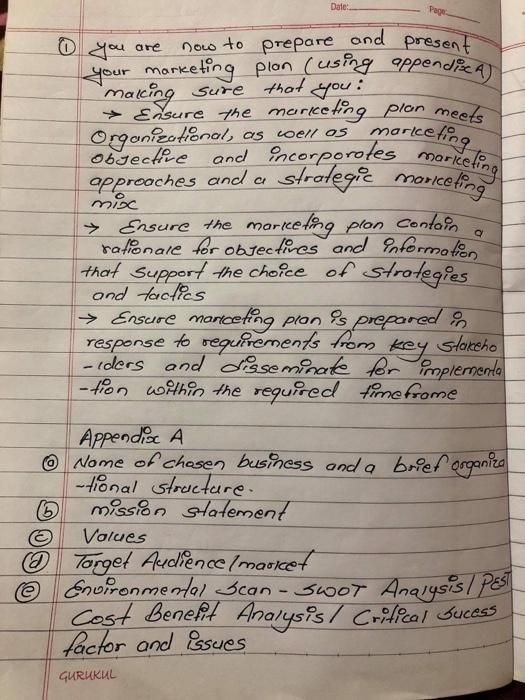 Date: Page:
① you are now to prepare and present
your marketing plan (using appendix A)
making sure that you:
→ Ensure the marketing plan meets
Organizational, as well as marketing
objective and incorporates marketing
approaches and a strategic marketing
mix
→ Ensure the marketing plan contain a
rationale for objectives and information
that support the choice of strategies
and tactics
→ Ensure marketing plan is prepared in
response to requirements from key stakeho
-lders and disseminate for implementa
-tion within the required timeframe
Appendix A
ⓐ Name of chosen business and a brief organiza
-tional structure.
ⓑ mission statement
ⓒ Values
ⓓ Target Audience/market
ⓔ Environmental Scan - SWOT Analysis/ PEST
Cost Benefit Analysis/ Critical Sucess
factor and issues
GURUKUL